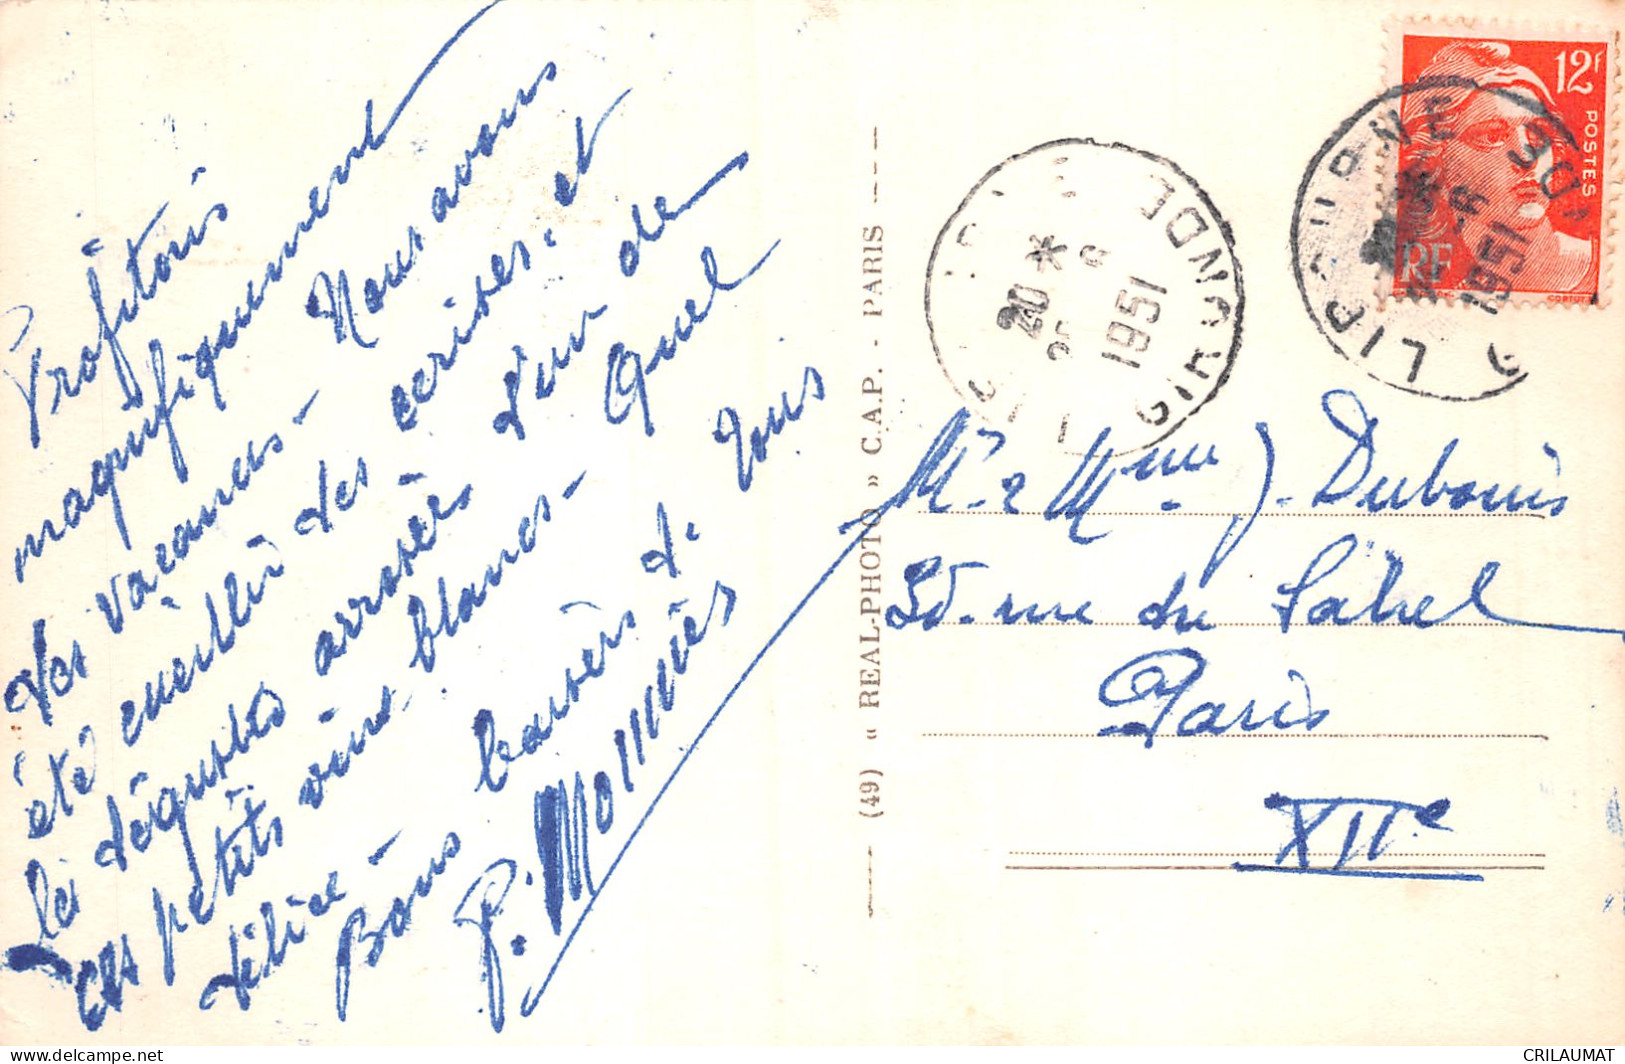 Profitons
magnifiquement
des vacances - Nous avons
été cueillir des cerises. et
les dégustés arrosées d'un de
ces petits vins blancs - Quel
délice -
Bons baisers à tous
P. Monnier
(49) « REAL-PHOTO » C.A.P. - PARIS
Mr & Mme J. Dubouis
35. rue du Sahel
Paris
XIIe
20 *
1951
GIRONDE
LIBOURNE
1951
12f
POSTES
RF
delcampe.net
CRILAUMAT